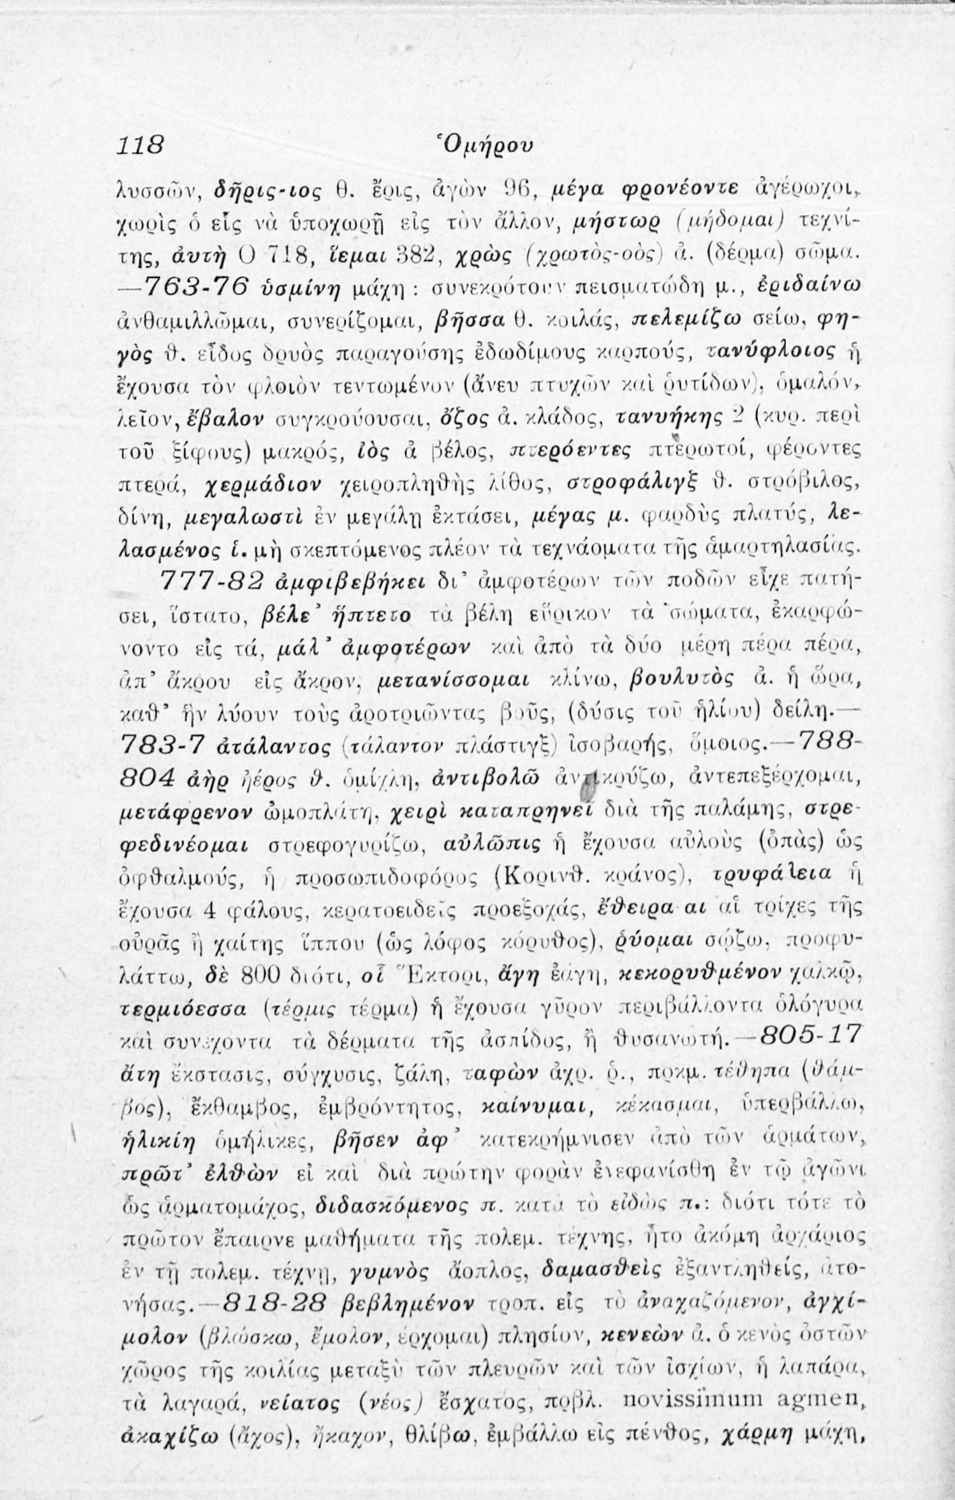 118 Ὁμήρου
λυσσῶν, δῆρις-ιος θ. ἔρις, ἀγὼν 96, μέγα φρονέοντε ἀγέρωχοι,
χωρὶς ὁ εἷς νὰ ὑποχωρῇ εἰς τὸν ἄλλον, μήστωρ (μήδομαι) τεχνί-
της, ἀυτὴ Ο 718, ἵεμαι 382, χρὼς (χρωτὸς-οὸς) ἀ. (δέρμα) σῶμα.
—763-76 ὑσμίνη μάχη : συνεκρότουν πεισματώδη μ., ἐριδαίνω
ἀνθαμιλλῶμαι, συνερίζομαι, βῆσσα θ. κοιλάς, πελεμίζω σείω, φη-
γὸς θ. εἶδος δρυὸς παραγούσης ἐδωδίμους καρπούς, τανύφλοιος ἡ
ἔχουσα τὸν φλοιὸν τεντωμένον (ἄνευ πτυχῶν καὶ ῥυτίδων), ὁμαλόν,
λεῖον, ἔβαλον συγκρούουσαι, ὄζος ἀ. κλάδος, τανυήκης 2 (κυρ. περὶ
τοῦ ξίφους) μακρός, ἰὸς ἀ βέλος, πτερόεντες πτερωτοί, φέροντες
πτερά, χερμάδιον χειροπληθὴς λίθος, στροφάλιγξ θ. στρόβιλος,
δίνη, μεγαλωστὶ ἐν μεγάλῃ ἐκτάσει, μέγας μ. φαρδὺς πλατύς, λε-
λασμένος ἱ. μὴ σκεπτόμενος πλέον τὰ τεχνάσματα τῆς ἁμαρτηλασίας.
777-82 ἀμφιβεβήκει δι' ἀμφοτέρων τῶν ποδῶν εἶχε πατή-
σει, ἵστατο, βέλε' ἥπτετο τὰ βέλη εὕρικον τὰ σώματα, ἐκαρφώ-
νοντο εἰς τά, μάλ' ἀμφοτέρων καὶ ἀπὸ τὰ δύο μέρη πέρα πέρα,
ἀπ' ἄκρου εἰς ἄκρον, μετανίσσομαι κλίνω, βουλυτὸς ἀ. ἡ ὥρα,
καθ' ἣν λύουν τοὺς ἀροτριῶντας βοῦς, (δύσις τοῦ ἡλίου) δείλη.—
783-7 ἀτάλαντος (τάλαντον πλάστιγξ) ἰσοβαρής, ὅμοιος.—788-
804 ἀὴρ ἠέρος θ. ὁμίχλη, ἀντιβολῶ ἀντικρύζω, ἀντεπεξέρχομαι,
μετάφρενον ὠμοπλάτη, χειρὶ καταπρηνεῖ διὰ τῆς παλάμης, στρε-
φεδινέομαι στρεφογυρίζω, αὐλῶπις ἡ ἔχουσα αὐλοὺς (ὀπὰς) ὡς
ὀφθαλμούς, ἡ προσωπιδοφόρος (Κορινθ. κράνος), τρυφάλεια ἡ
ἔχουσα 4 φάλους, κερατοειδεῖς προεξοχάς, ἔθειρα αι αἱ τρίχες τῆς
οὐρᾶς ἢ χαίτης ἵππου (ὡς λόφος κόρυθος), ῥύομαι σῴζω, προφυ-
λάττω, δὲ 800 διότι, οἷ Ἕκτορι, ἄγη ἐάγη, κεκορυθμένον χαλκῷ,
τερμιόεσσα (τέρμις τέρμα) ἡ ἔχουσα γῦρον περιβάλλοντα ὁλόγυρα
καὶ συνέχοντα τὰ δέρματα τῆς ἀσπίδος, ἢ θυσανωτή.—805-17
ἄτη ἔκστασις, σύγχυσις, ζάλη, ταφὼν ἀχρ. ῥ., πρκμ. τέθηπα (θάμ-
βος), ἔκθαμβος, ἐμβρόντητος, καίνυμαι, κέκασμαι, ὑπερβάλλω,
ἡλικίη ὁμήλικες, βῆσεν ἀφ' κατεκρήμνισεν ἀπὸ τῶν ἁρμάτων,
πρῶτ' ἐλθὼν εἰ καὶ διὰ πρώτην φορὰν ἐνεφανίσθη ἐν τῷ ἀγῶνι
ὡς ἁρματομάχος, διδασκόμενος π. κατὰ τὸ εἰδὼς π.: διότι τότε τὸ
πρῶτον ἔπαιρνε μαθήματα τῆς πολεμ. τέχνης, ἦτο ἀκόμη ἀρχάριος
ἐν τῇ πολεμ. τέχνῃ, γυμνὸς ἄοπλος, δαμασθεὶς ἐξαντληθείς, ἀτο-
νήσας.—818-28 βεβλημένον τροπ. εἰς τὸ ἀναχαζόμενον, ἀγχί-
μολον (βλώσκω, ἔμολον, ἔρχομαι) πλησίον, κενεὼν ἀ. ὁ κενὸς ὀστῶν
χῶρος τῆς κοιλίας μεταξὺ τῶν πλευρῶν καὶ τῶν ἰσχίων, ἡ λαπάρα,
τὰ λαγαρά, νείατος (νέος) ἔσχατος, πρβλ. novissimum agmen,
ἀκαχίζω (ἄχος), ἤκαχον, θλίβω, ἐμβάλλω εἰς πένθος, χάρμη μάχη,